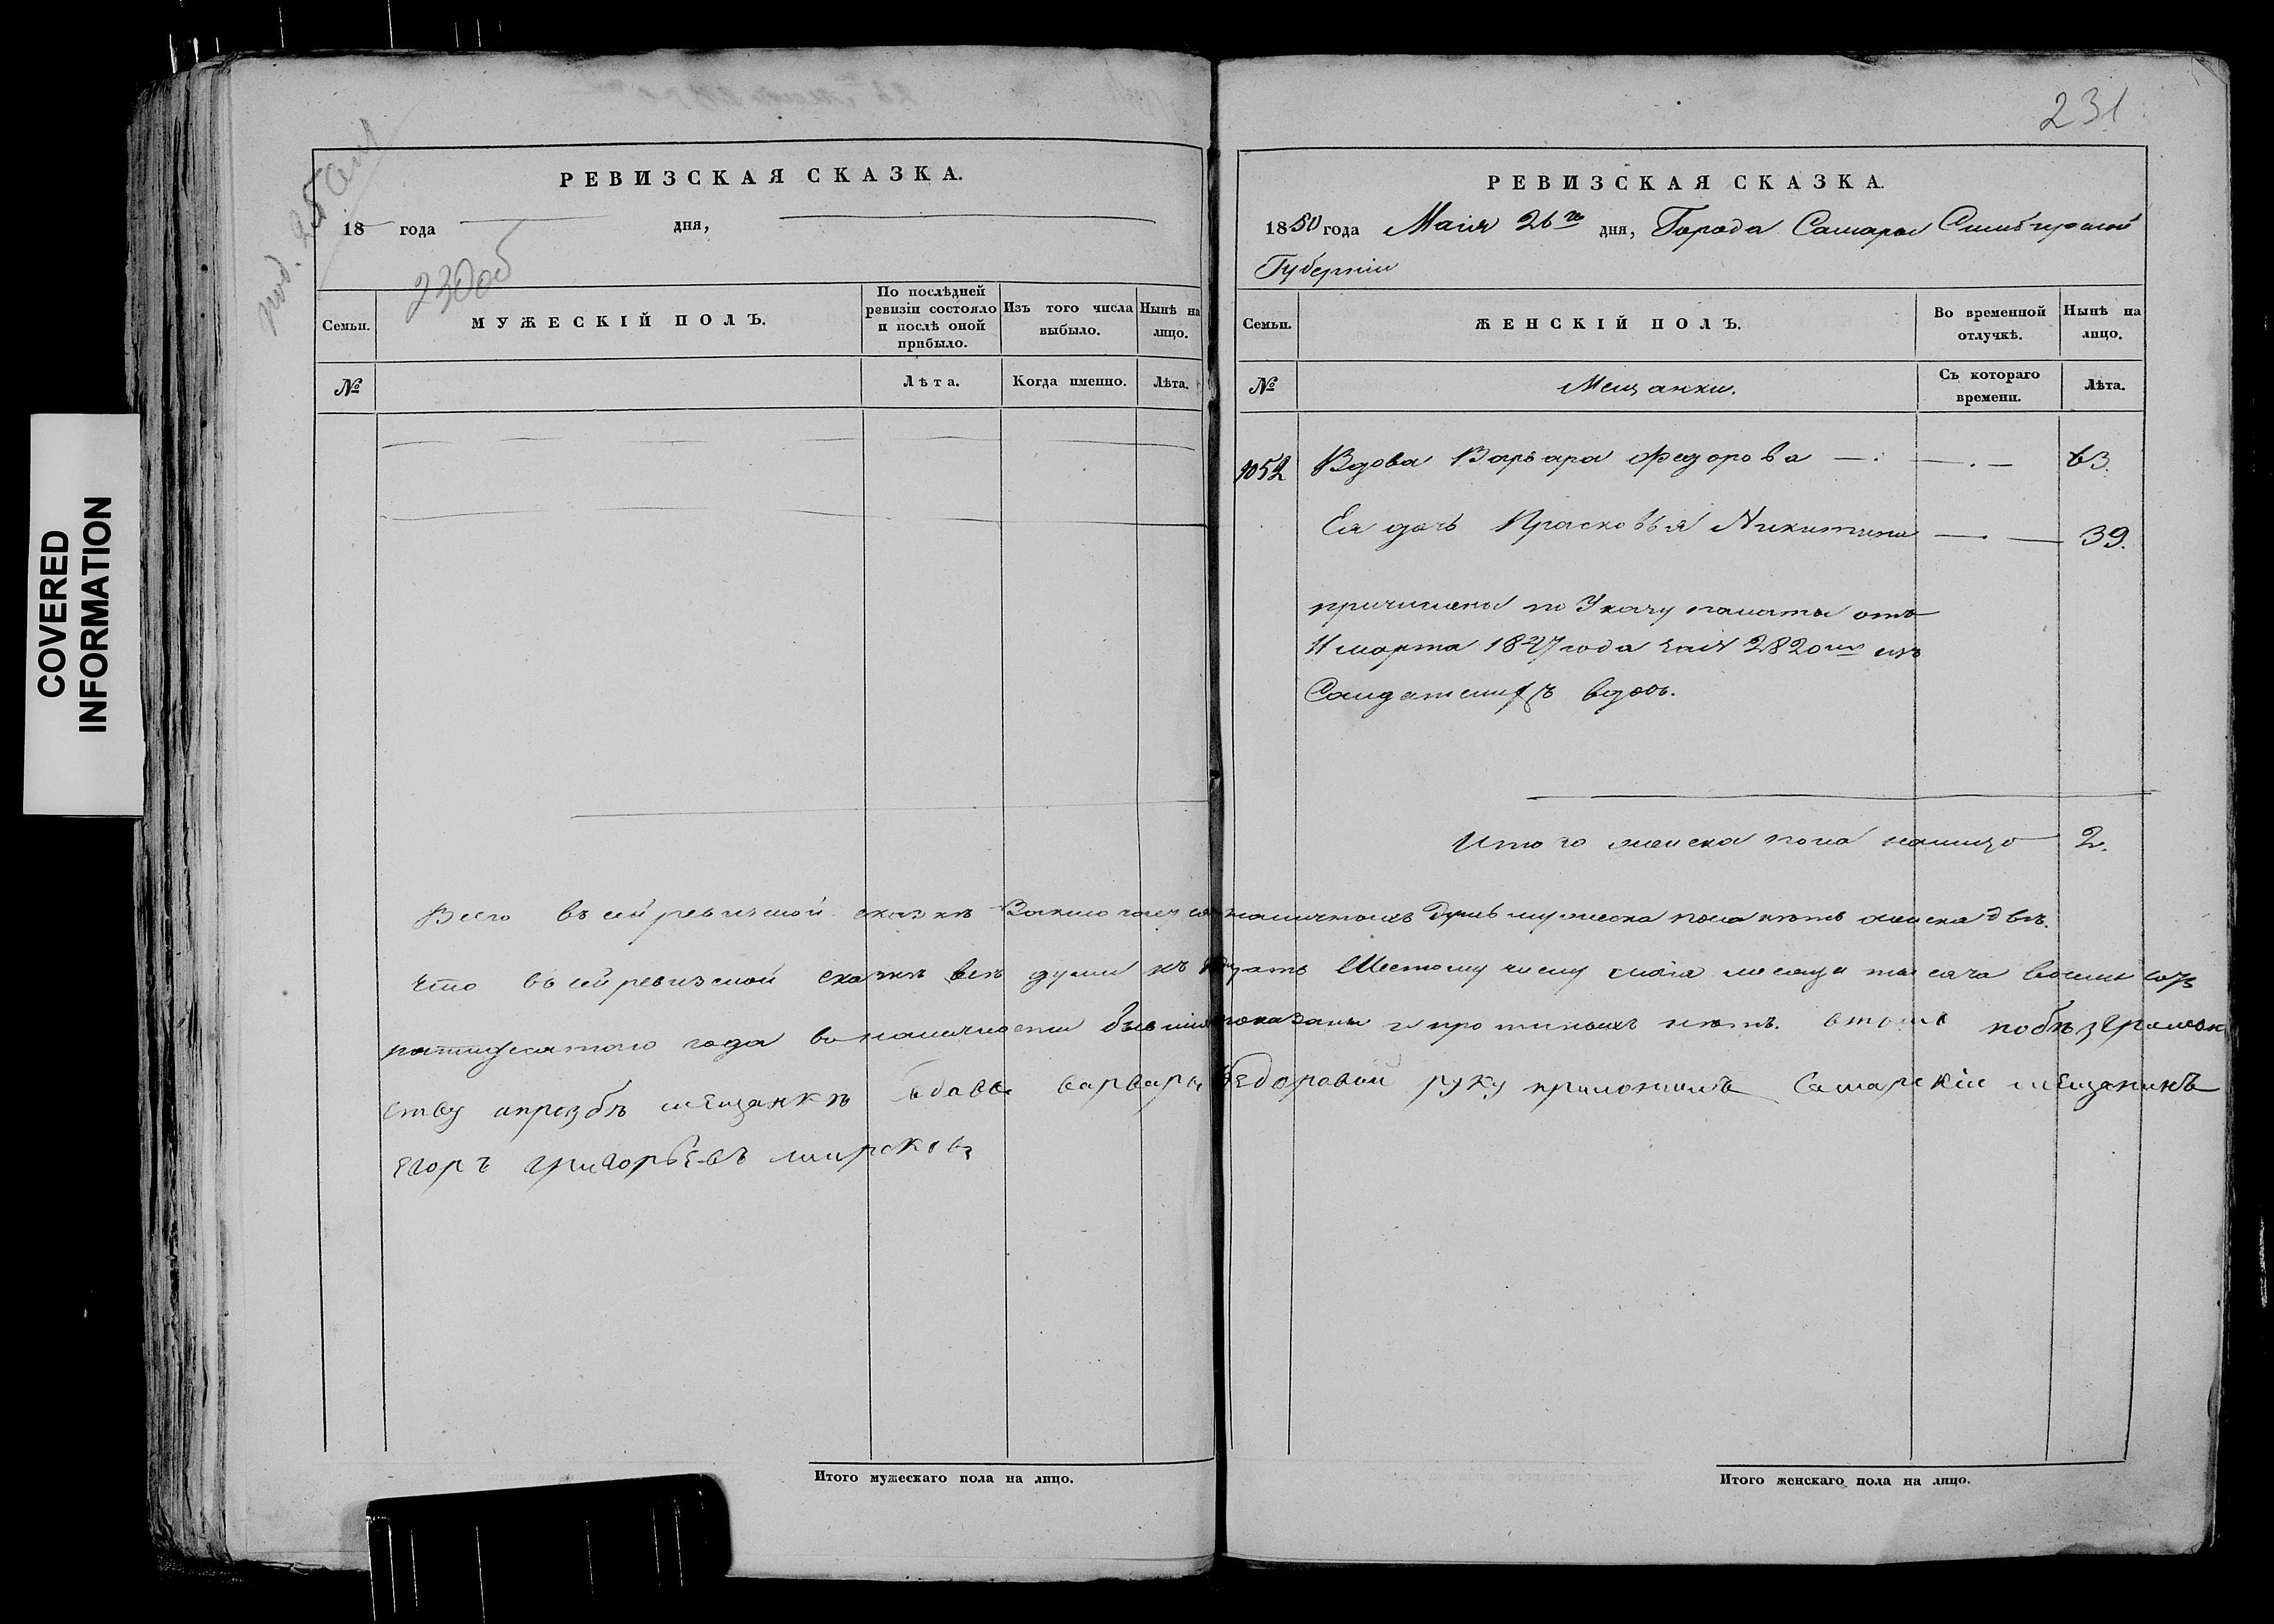 COVERED
INFORMATION
230об
РЕВИЗСКАЯ СКАЗКА.
18 года дня,
Семьи.
МУЖЕСКІЙ ПОЛЪ.
По послѣдней
ревизіи состояло
и послѣ оной
прибыло.
Изъ того числа
выбыло.
Нынѣ на
лицо.
№
Лѣта.
Когда именно.
Лѣта.
231
РЕВИЗСКАЯ СКАЗКА.
1850 года Маія 26го дня, Города Самары Симбирской
Губерніи
Семьи.
ЖЕНСКІЙ ПОЛЪ.
Во временной
отлучкѣ.
Нынѣ на
лицо.
№
Мещанки.
Съ котораго
времени.
Лѣта.
1052 Вдова Варвара Федорова 63.
Ея дочь Прасковья Никитина 39.
причислены по Указу палаты отъ
11 марта 1827 года за № 2820мъ изъ
Салдатскихъ вдовъ.
Итого женска пола налицо 2.
Всего въ сей ревизской сказкѣ Заключается наличныхъ душъ мужеска пола нѣтъ женска двѣ.
Что въ сей ревизской сказкѣ всѣ души къ двадцать Шестому числу маія месяца тысяча восемь сотъ
пятидесятаго года в наличности бывшія показаны и прописныхъ нѣтъ. втомъ побѣзграмот
ству ипрозбѣ мещанкѣ вдове варвары Федоровой руку приложилъ Самарскій мещанинъ
Егоръ григорьевъ
Итого мужескаго пола на лицо.
Итого женскаго пола на лицо.